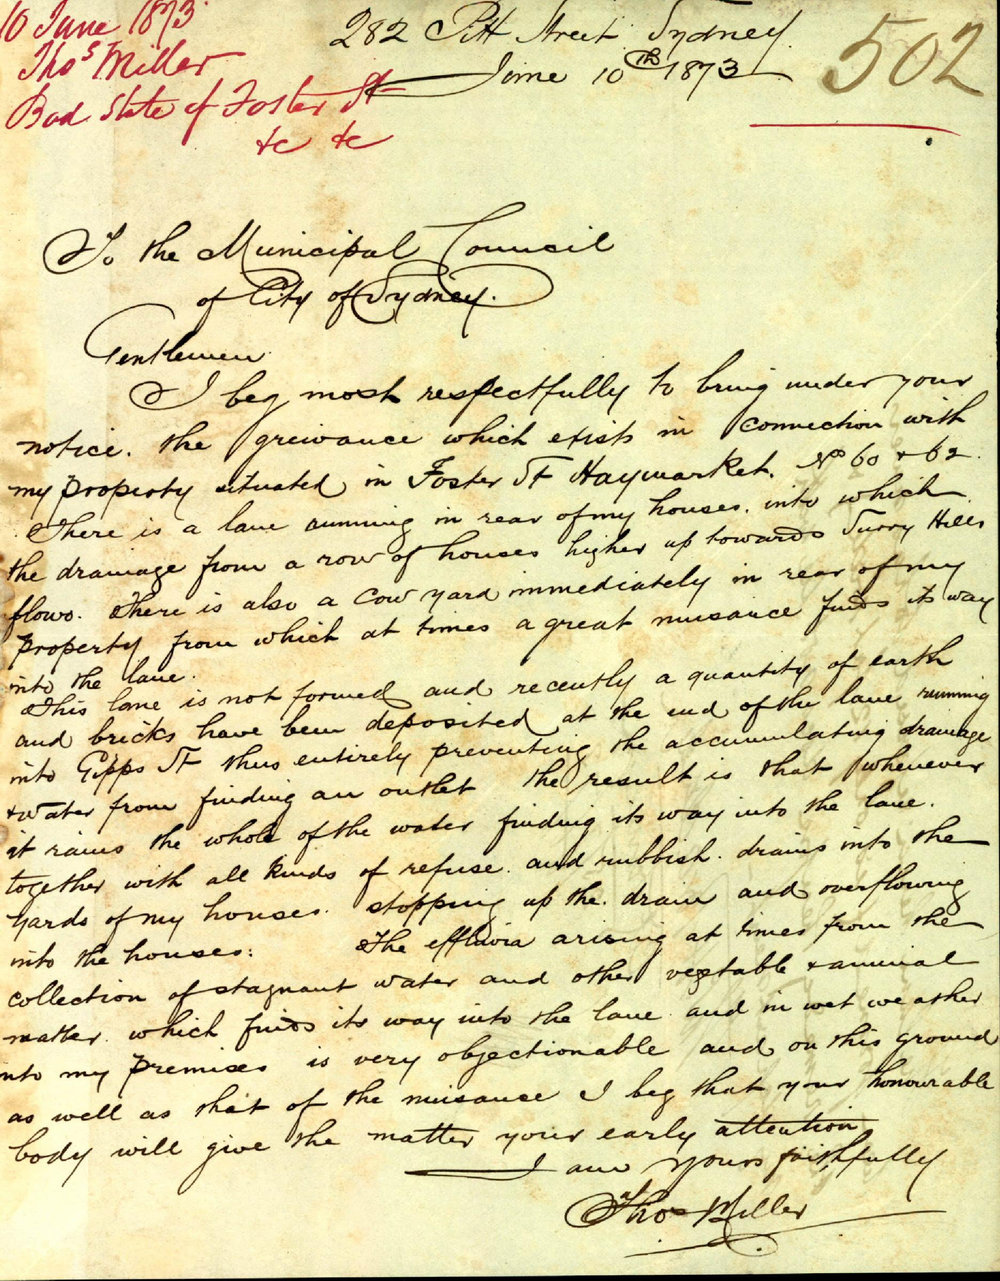 10 June 1873
Thos Miller
Bad State of Foster St
&c &c
282 Pitt Street Sydney
June 10th 1873
502
To the Municipal Council
of City of Sydney.
Gentlemen
I beg most respectfully to bring under your
notice. the greivance which exists in connection with
my property situated in Foster St Haymarket. No 60 & 62.
There is a lane running in rear of my houses. into which
the drainage from a row of houses higher up towards Surry Hills
flows. There is also a Cow yard immediately in rear of my
property from which at times a great nuisance finds its way
into the lane.
This lane is not formed and recently a quantity of earth
and bricks have been deposited at the end of the lane running
into Gipps St thus entirely preventing the accumulating drainage
& water from finding an outlet the result is that whenever
it rains the whole of the water finding its way into the lane.
together with all kinds of refuse. and rubbish. drains into the
yards of my houses. stopping up the. drain and overflowing
into the houses. The effluvia arising at times from the
collection of stagnant water and other vegetable & animal
matter. which finds its way into the lane. and in wet weather
into my premises is very objectionable and on this ground
as well as that of the nuisance I beg that your honourable
body will give the matter your early attention
I am yours faithfully
Thos Miller